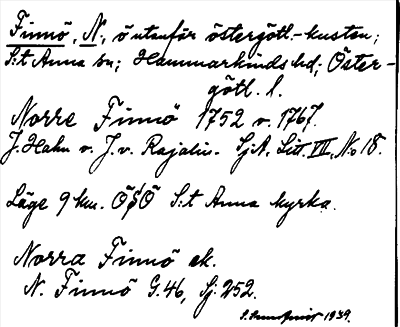 Finnö, N., ö utanför östergötl.-kusten;
S:t Anna sn; Hammarkinds hd; Öster-
götl. l.
Norre Finnö 1752 v. 1767.
J. Hahn v. J. v. Rajalin. SjA, Litt. III, N:o 18.
Läge 9 km. ÖSÖ S:t Anna kyrka.
Norra Finnö ek.
N. Finnö G. 46, Sj. 252.
1939.